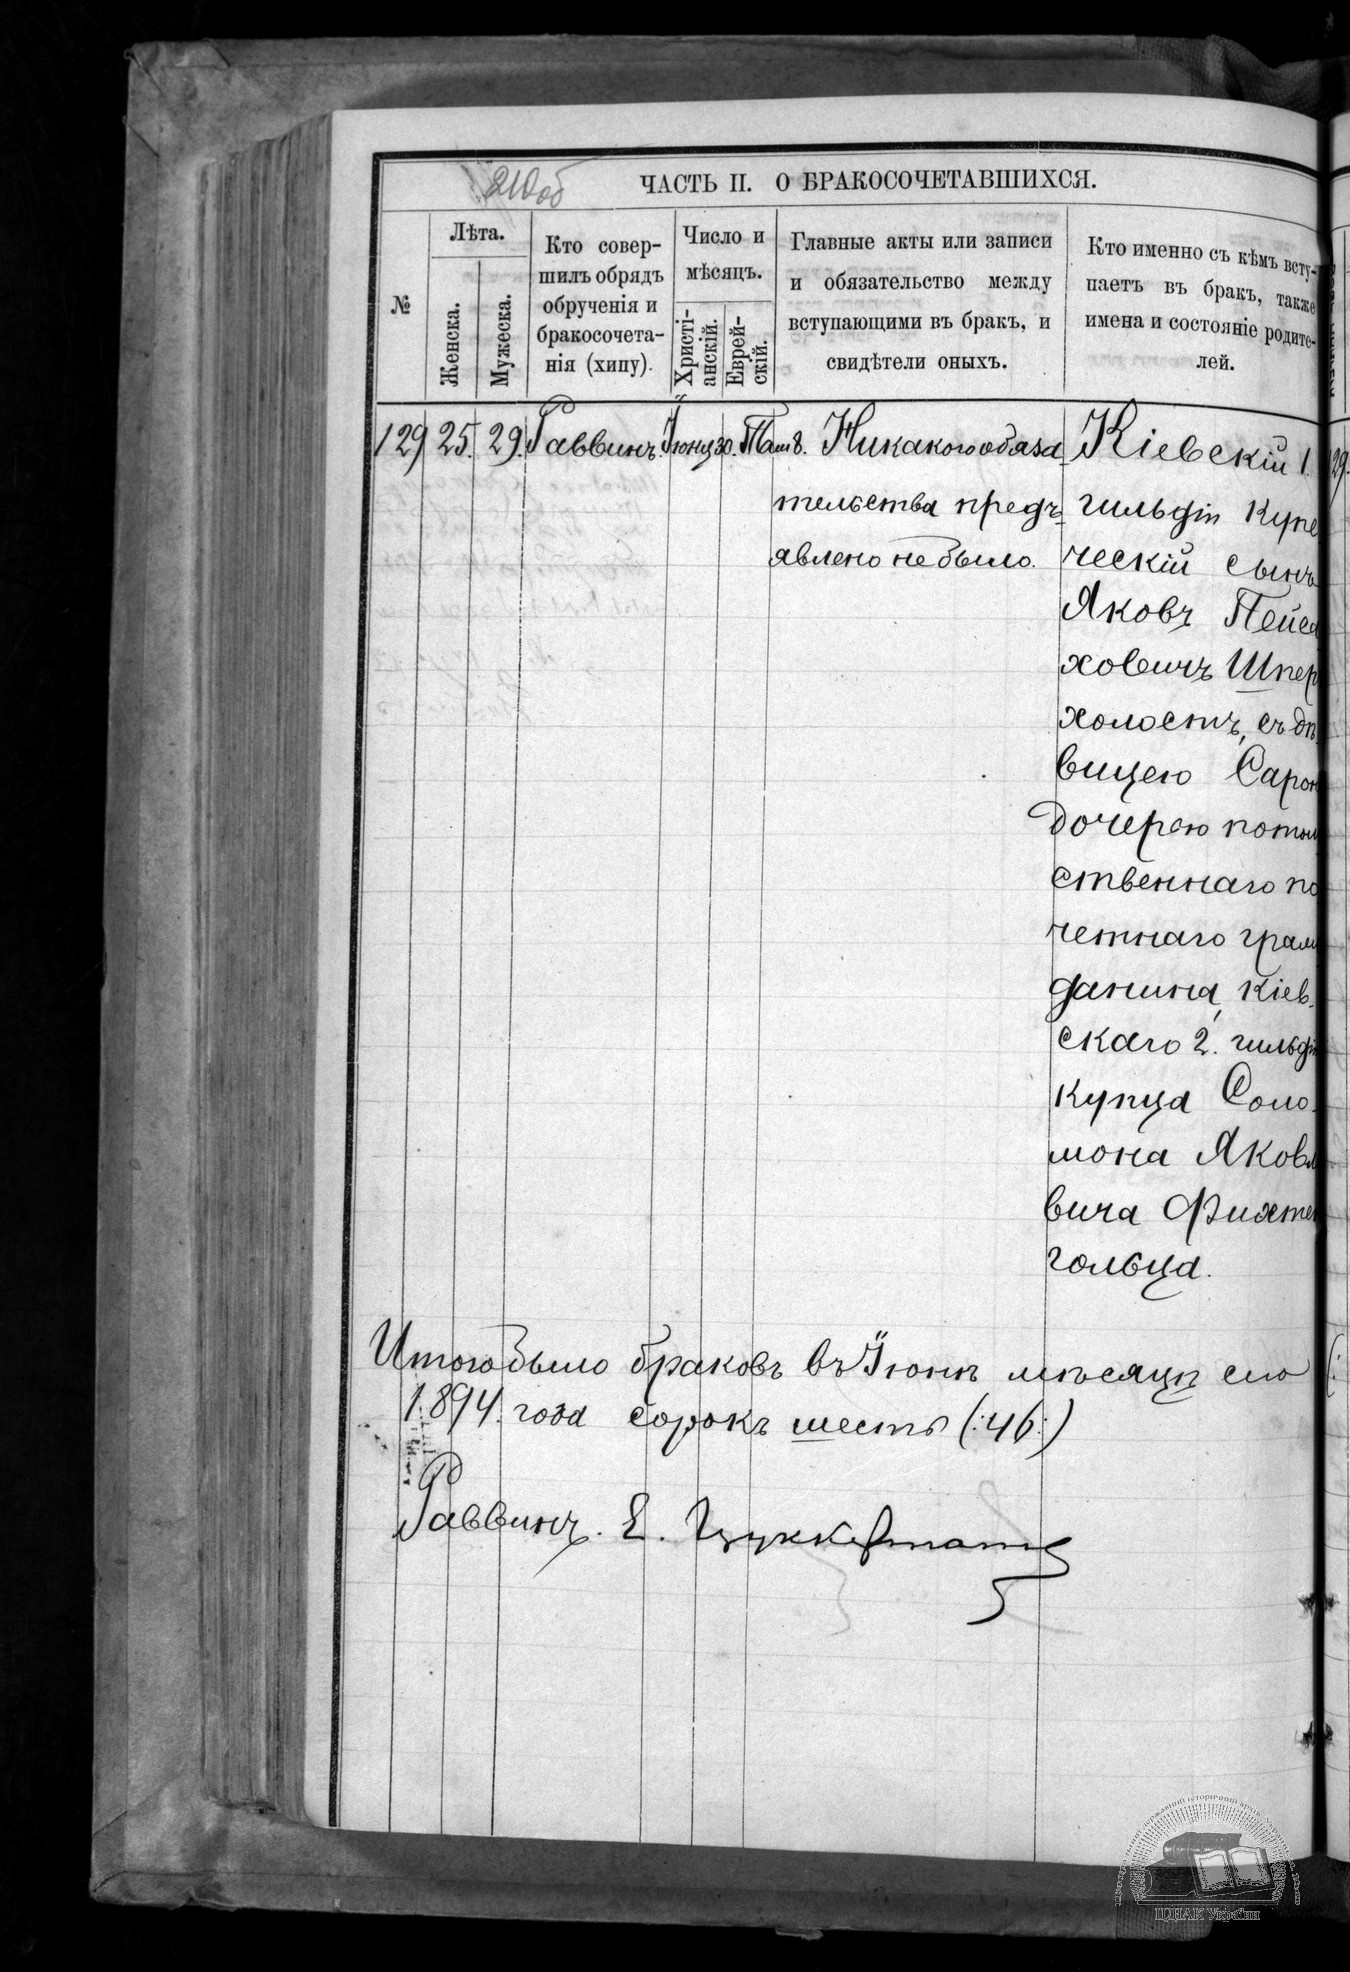 210об
ЧАСТЬ II. О БРАКОСОЧЕТАВШИХСЯ.
№
Лѣта.
Женска.
Мужеска.
Кто совер-
шилъ обрядъ
обрученія и
бракосочета-
нія (хипу).
Число и
мѣсяцъ.
Христі-
анскій.
Еврей-
скій.
Главные акты или записи
и обязательство между
вступающими въ бракъ, и
свидѣтели оныхъ.
Кто именно съ кѣмъ всту-
паетъ въ бракъ, также
имена и состояніе родите-
лей.
129 25. 29. Раввинъ. Іюня 30. Там 8. Никакого обяза-
тельства предъ-
явлено не было.
Кіевскій 1.
гильдіи купе
ческій сынъ
Яковъ Пейса
ховичъ Шпер
холостъ, съ дѣ-
вицею Сарою
дочерью потом
ственнаго по
четнаго граж
данина, Кіев-
скаго 2. гильдіи
купца Соло-
мона Яковл
вича Фихтен
гольца.
129.
Итого было браковъ въ Іюнѣ мѣсяцѣ сего
1894. года сорокъ шесть (:46:)
Раввинъ. Е. Цуккерманъ
ЦДІАК України